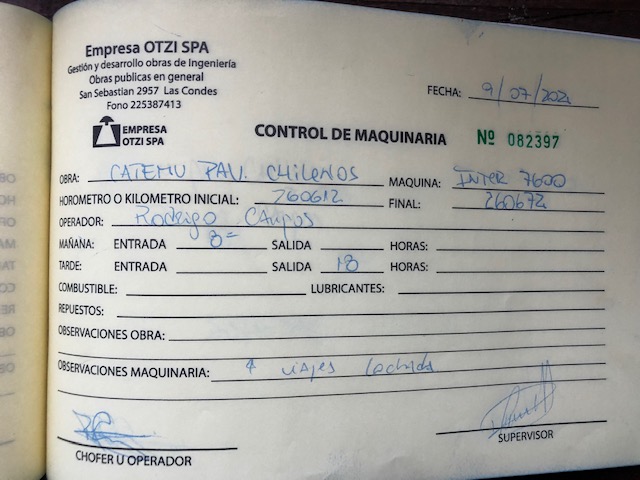 Empresa OTZI SPA
Gestión y desarrollo obras de Ingeniería
Obras publicas en general
San Sebastian 2957 Las Condes
Fono 225387413
FECHA: 9/07/2024
EMPRESA
OTZI SPA
CONTROL DE MAQUINARIA Nº 082397
OBRA: CATEMU PAV. CHILENOS MAQUINA: INTER 7600
HOROMETRO O KILOMETRO INICIAL: 260612 FINAL: 260672
OPERADOR: Rodrigo CAMPOS
MAÑANA: ENTRADA 8= SALIDA HORAS:
TARDE: ENTRADA SALIDA 18 HORAS:
COMBUSTIBLE: LUBRICANTES:
REPUESTOS:
OBSERVACIONES OBRA:
OBSERVACIONES MAQUINARIA: 4 viajes
CHOFER U OPERADOR
SUPERVISOR